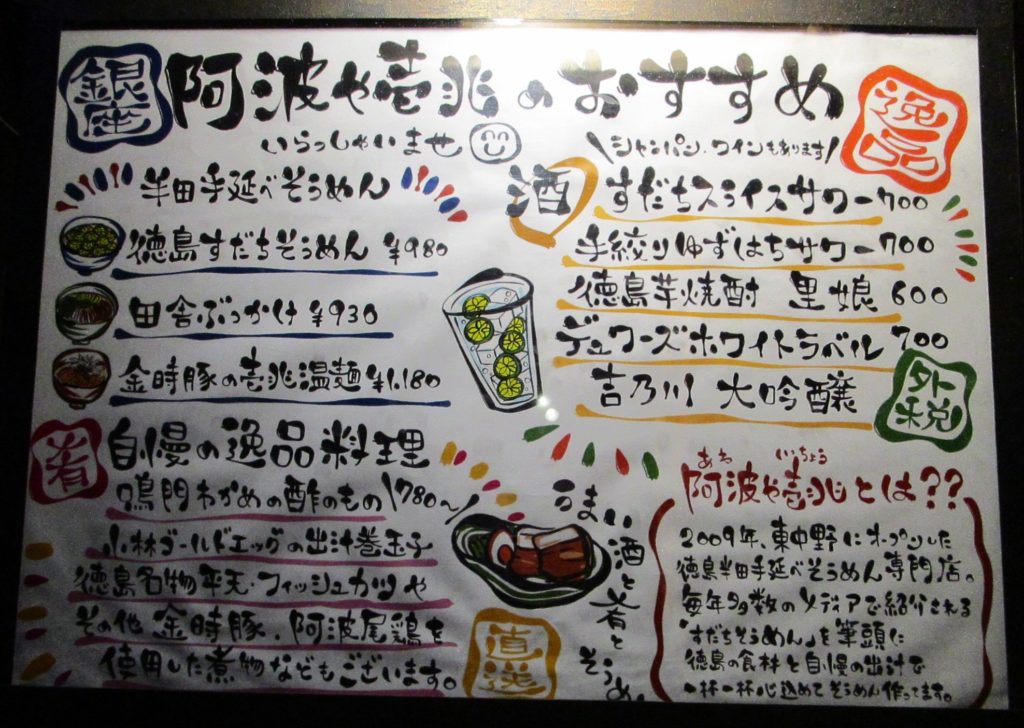 銀座
阿波や壱兆のおすすめ
逸品
いらっしゃいませ
\シャンパン、ワインもあります/
半田手延べそうめん
徳島すだちそうめん ¥980
田舎ぶっかけ ¥930
金時豚の壱兆温麺 ¥1,180
酒
すだちスライスサワー 700
手絞りゆずはちサワー 700
徳島芋焼酎 里娘 600
デュワーズホワイトラベル 700
吉乃川 大吟醸
外税
肴
自慢の逸品料理
鳴門わかめの酢のもの \780〜
小林ゴールドエッグの出汁巻玉子
徳島名物平天・フィッシュカツや
その他 金時豚、阿波尾鶏を
使用した煮物などもございます。
うまい
酒と肴と
そうめ
直送
あわ いっちょう
阿波や壱兆とは??
2009年、東中野にオープンした
徳島半田手延べそうめん専門店。
毎年多数のメディアで紹介される
「すだちそうめん」を筆頭に
徳島の食材と自慢の出汁で
一杯一杯心込めてそうめん作ってます。